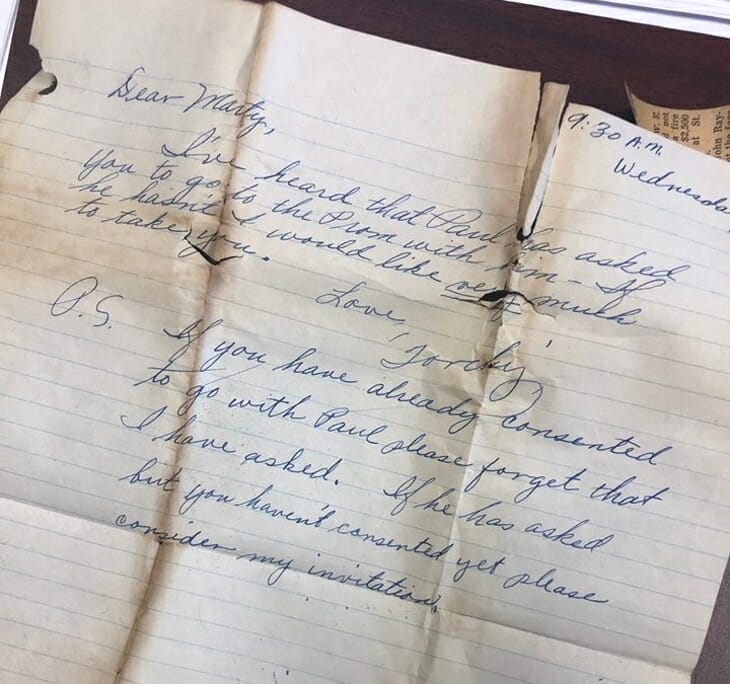 9:30 A.M.
Wednesda
Dear Marty,
I've heard that Paul has asked
you to go to the Prom with him – If
he hasn't I would like very much
to take you.
Love,
'Torchy'
P.S. If you have already consented
to go with Paul please forget that
I have asked. If he has asked
but you haven't consented yet please
consider my invitation.
W. E
not
a fire
$2,500
at St.
ohn Ray-